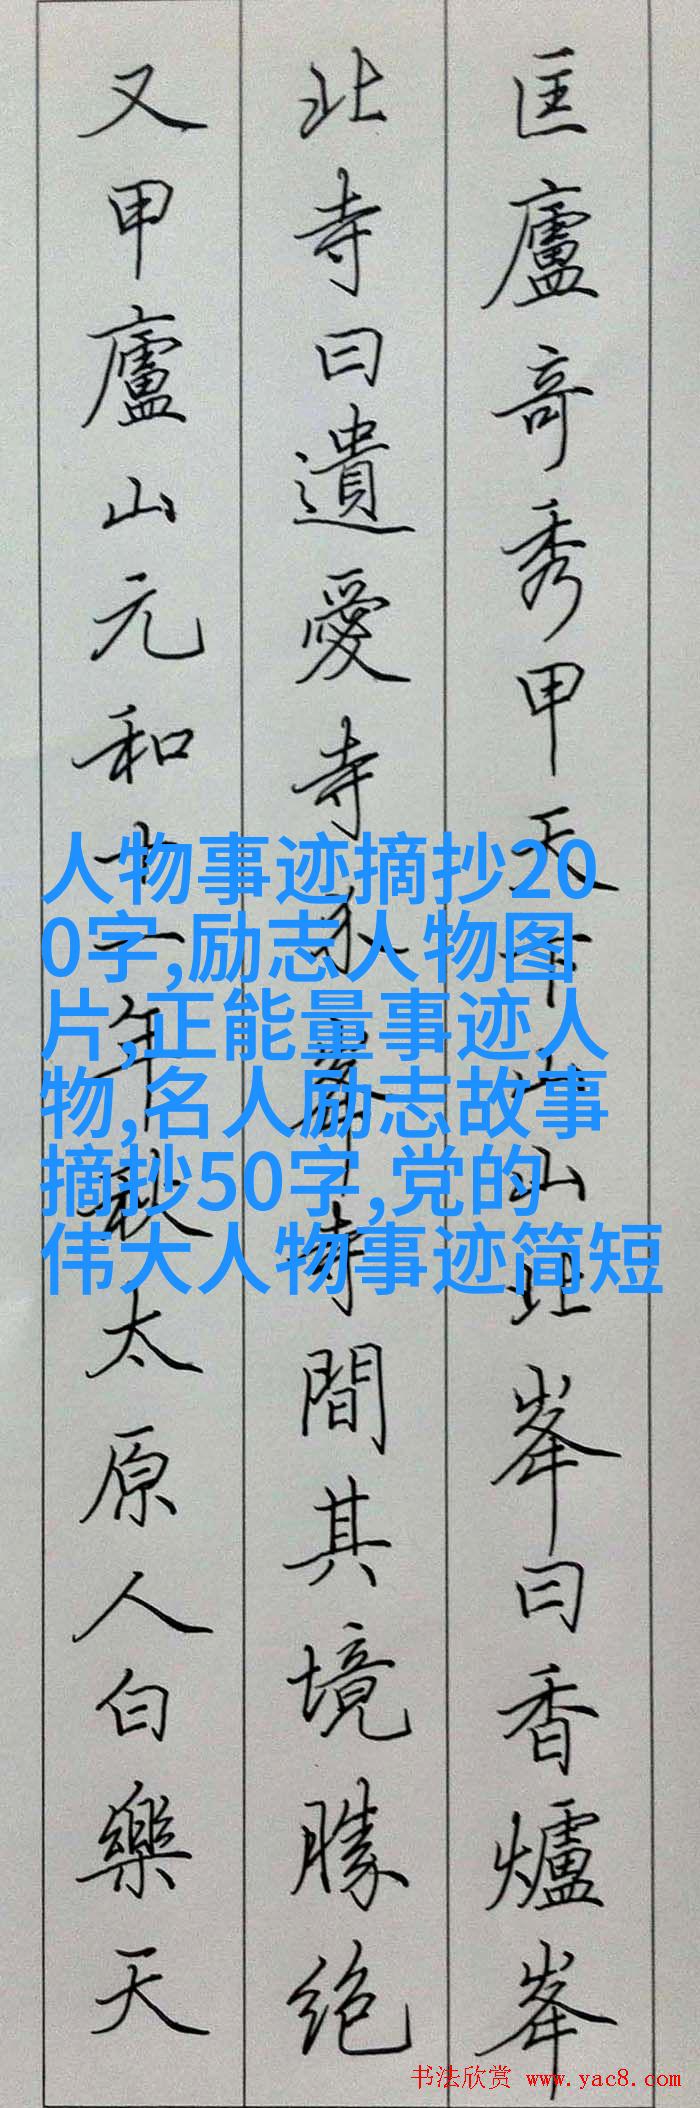 匡廬竒秀甲天下山山北峯曰香爐峯
北寺曰遺愛寺介峯寺間其境勝絶
又甲廬山元和十一年秋太原人白樂天
人物事迹摘抄20
0字,励志人物图
片,正能量事迹人
物,名人励志故事
摘抄50字,党的
伟大人物事迹简短
书法欣赏 www.yac8.com